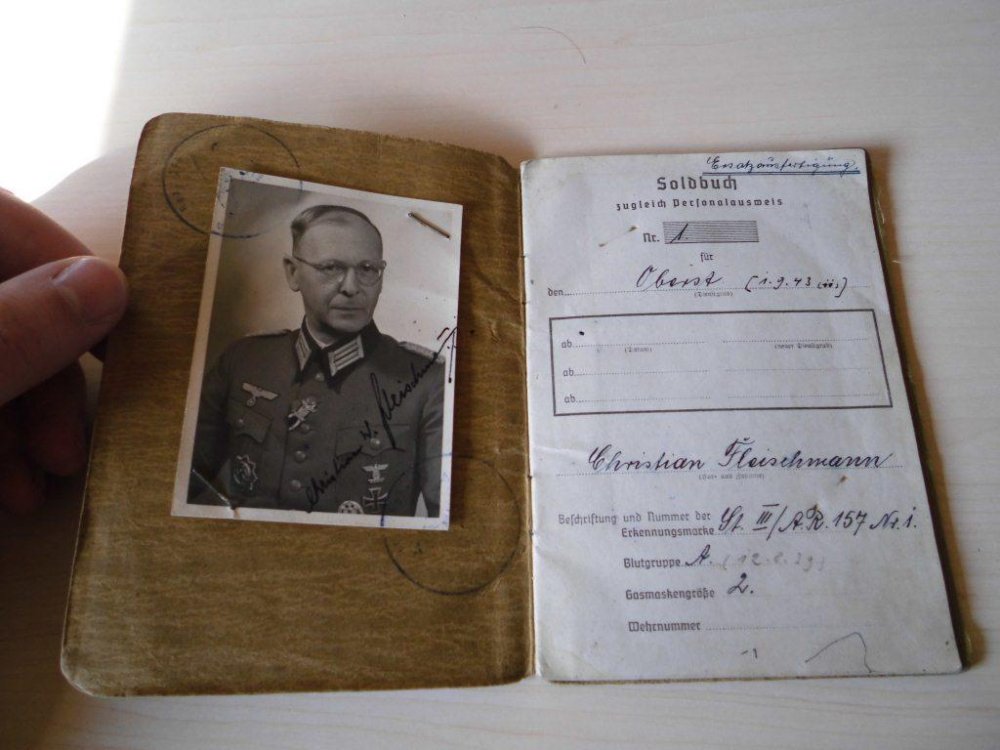 Christian H. Fleischmann
Ersatzausfertigung
Soldbuch
zugleich Personalausweis
Nr. 1.
für
den Oberst (1.9.43
(Dienstgrad)
ab
(Datum) (neuer Dienstgrad)
ab
ab
Christian Fleischmann
(Vor- und Zuname)
Beschriftung und Nummer der
Erkennungsmarke St. III/A.R. 157 Nr. 1.
Blutgruppe A.
Gasmaskengröße 2.
Wehrnummer